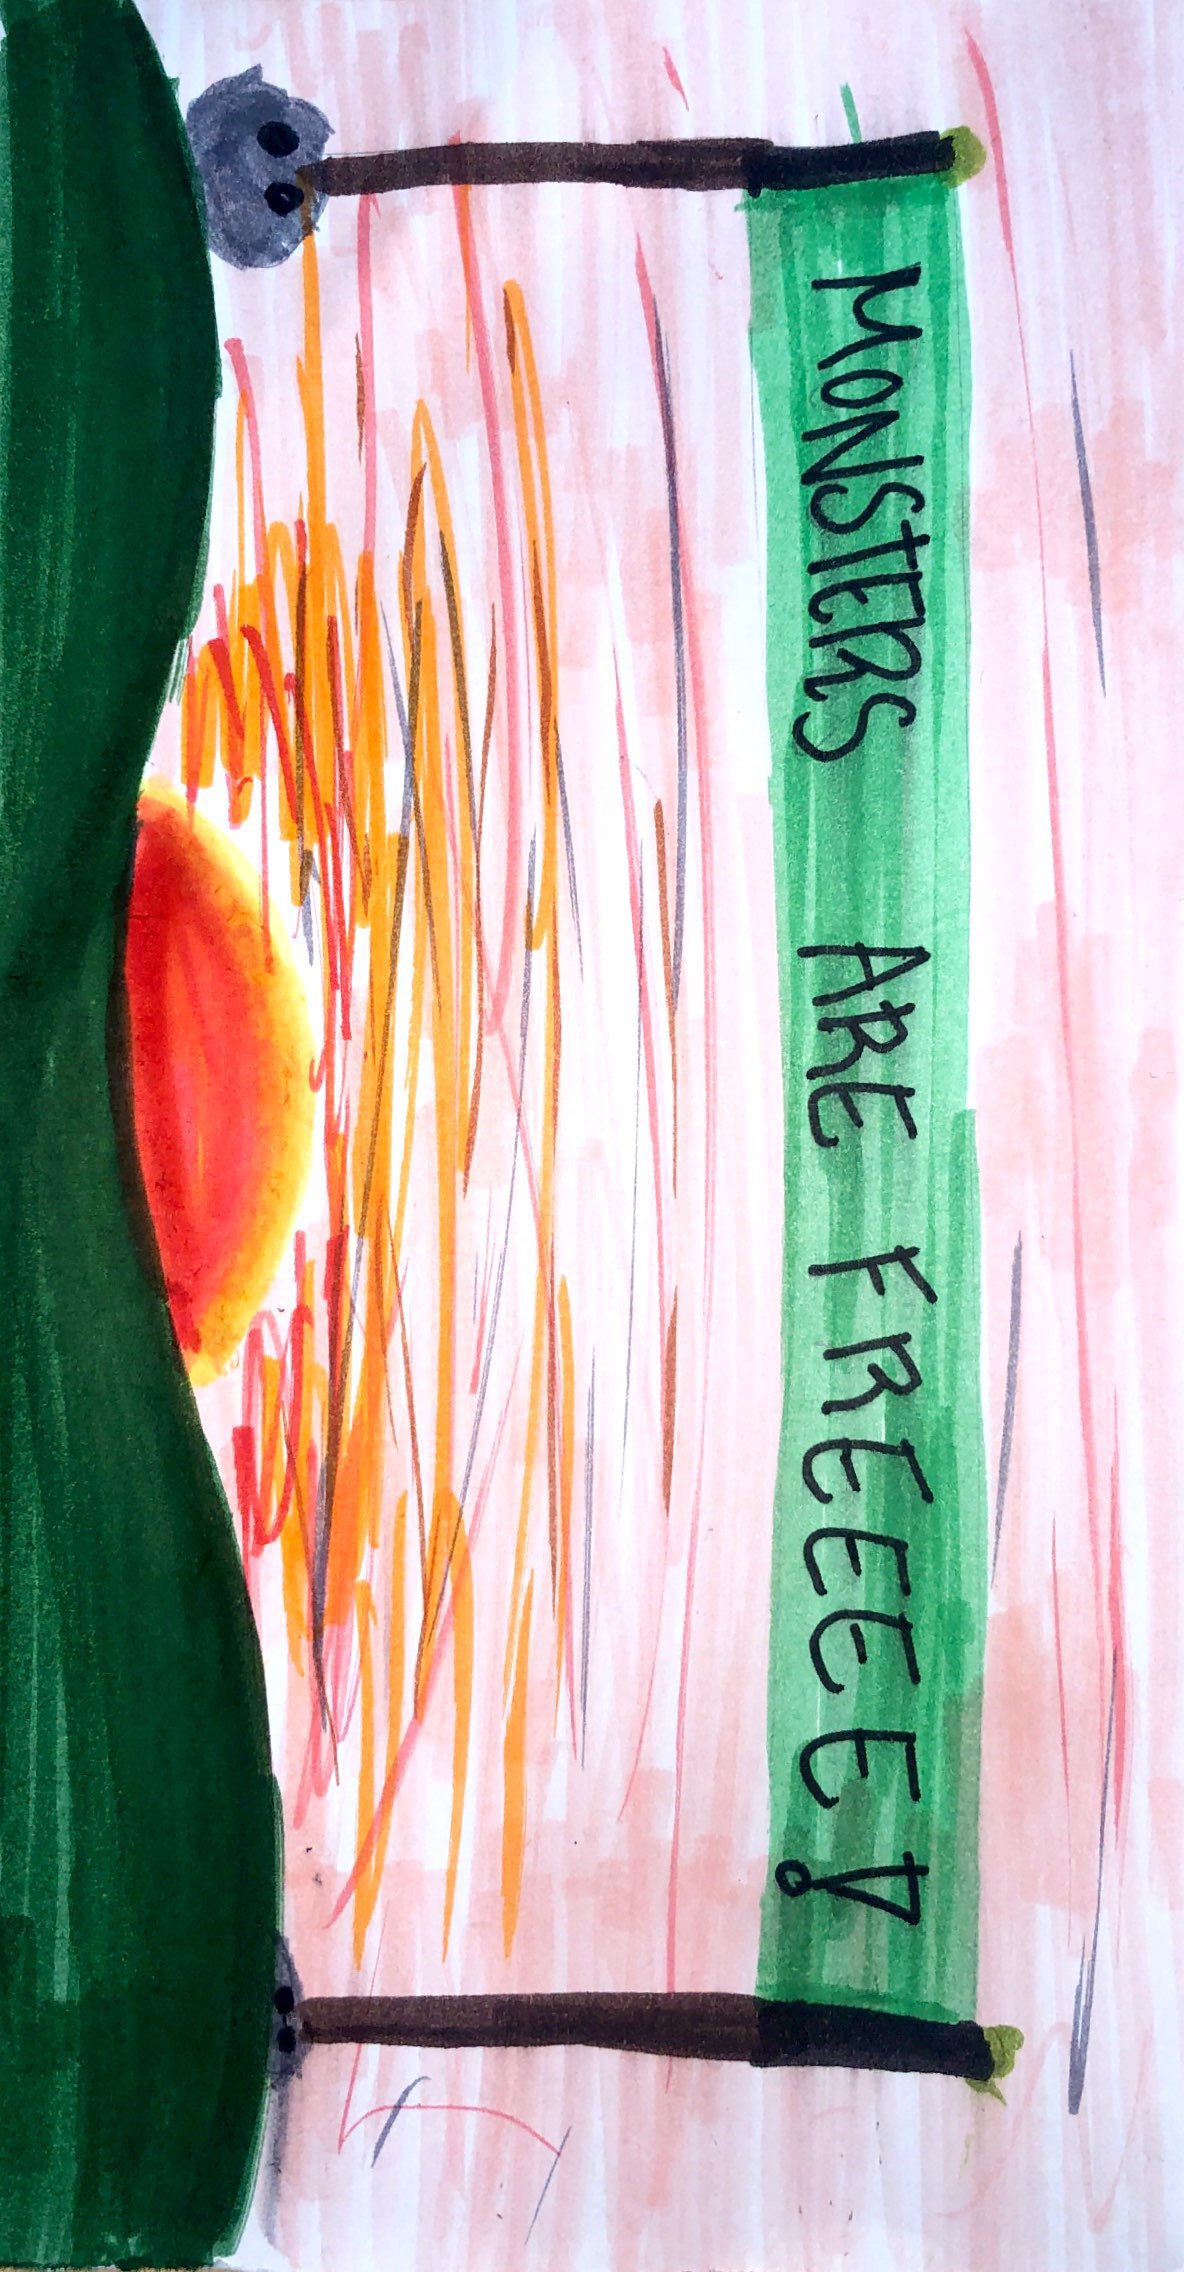 MONSTERS ARE FREEEEE!